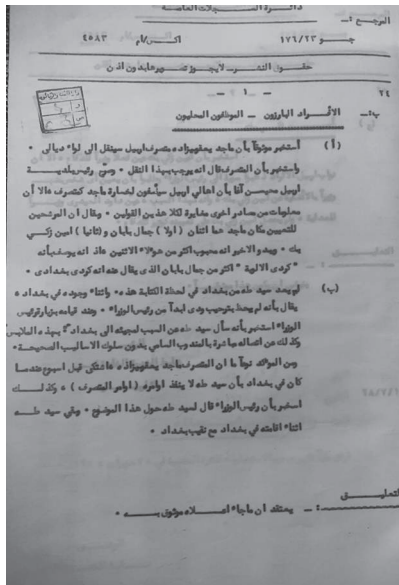 دائرة السجلات العامة
المرجع :ـ
جو ١٧٦/٢٣ اكس/ام ٤٥٨٣
حقوق النشر ـ لا يجوز تصويرها بدون اذن
٢٤ ـ ١ ـ
ب :ـ الافراد البارزون ـ الموظفون المحليون
(أ) أستخبر موثوقاً بأن ماجد يعقوبزاده متصرف اربيل سينتقل الى لواء ديالى ٠
واستخبر بأن المتصرف قال انه يرحب بهذا النقل ٠ وصرح رئيس بلدية
اربيل بأن اهالي اربيل سيأسفون لخسارة ماجد كمتصرف ٠ الا أن
معلومات من مصادر اخرى مغايرة لكلا هذين القولين ٠ ويقال ان المرشحين
للتعيين مكان ماجد هما اثنان (اولا) جمال بابان و (ثانيا) امين زكي
بك ٠ ويبدو الاخير انه محبوب اكثر من هؤلاء الاثنين ٠ اذ انه يوصف بأنه
" كردي الالوية " اكثر من جمال بابان الذي يقال عنه انه كردي بغدادي ٠
(ب) لم يعد سيد طه من بغداد في لحظة الكتابة هذه ٠ واثناء وجوده في بغداد ٠
يقال بأنه لم يحظ بترحيب ودي ابداً من رئيس الوزراء ٠ وعند قيامه بزيارة رئيس
الوزراء استخبر بأنه سأل سيد طه عن السبب لمجيئه الى بغداد بهذه الملابس
وكذلك عن اتصاله مباشرة بالمندوب السامي بدون سلوك الاساليب الصحيحة ٠
ومن المؤكد نوعاً ما ان المتصرف ماجد يعقوبزاده ٠ اشتكى قبل اسبوع عندما
كان في بغداد بأن سيد طه لا ينفذ اوامره (اوامر المتصرف) ٠ وكذلك
استخبر بأن رئيس الوزراء قال لسيد طه حول هذا الموضوع ٠ وبقي سيد طه
اثناء اقامته في بغداد مع نقيب بغداد ٠
التعليق
:ـ يعتقد ان ماجاء اعلاه موثوق به ٠